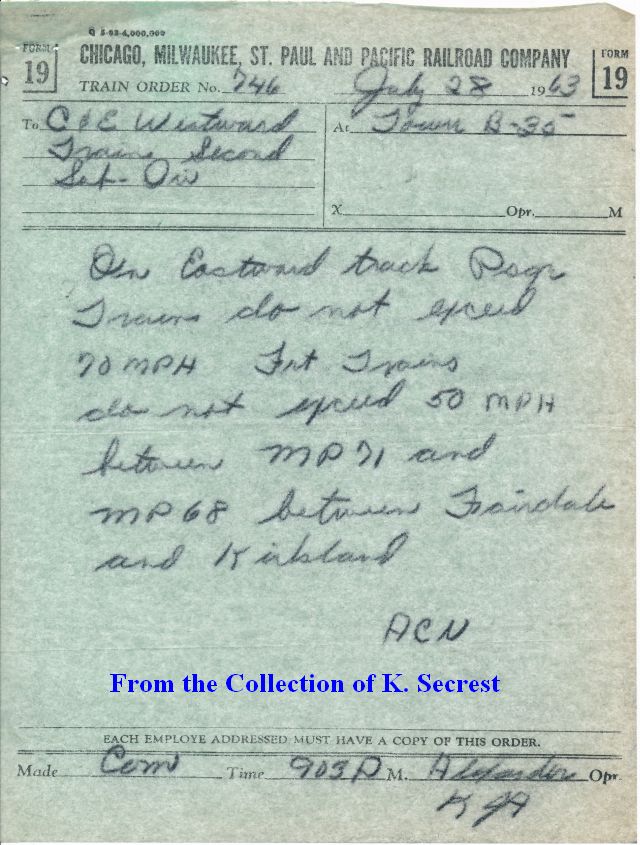 Q 5-63-4,000,000
FORM 19
CHICAGO, MILWAUKEE, ST. PAUL AND PACIFIC RAILROAD COMPANY
FORM 19
TRAIN ORDER No. 746 July 28 1963
To C & E Westward
Trains Second
Sub-Div
At Tower B-35
X Opr. M
On Eastward track Psgr
Trains do not exceed
70 MPH Frt Trains
do not exceed 50 MPH
between MP71 and
MP68 between Fairdale
and Kirkland
ACN
From the Collection of K. Secrest
EACH EMPLOYE ADDRESSED MUST HAVE A COPY OF THIS ORDER.
Made Com Time 903P M. Alexander Opr.